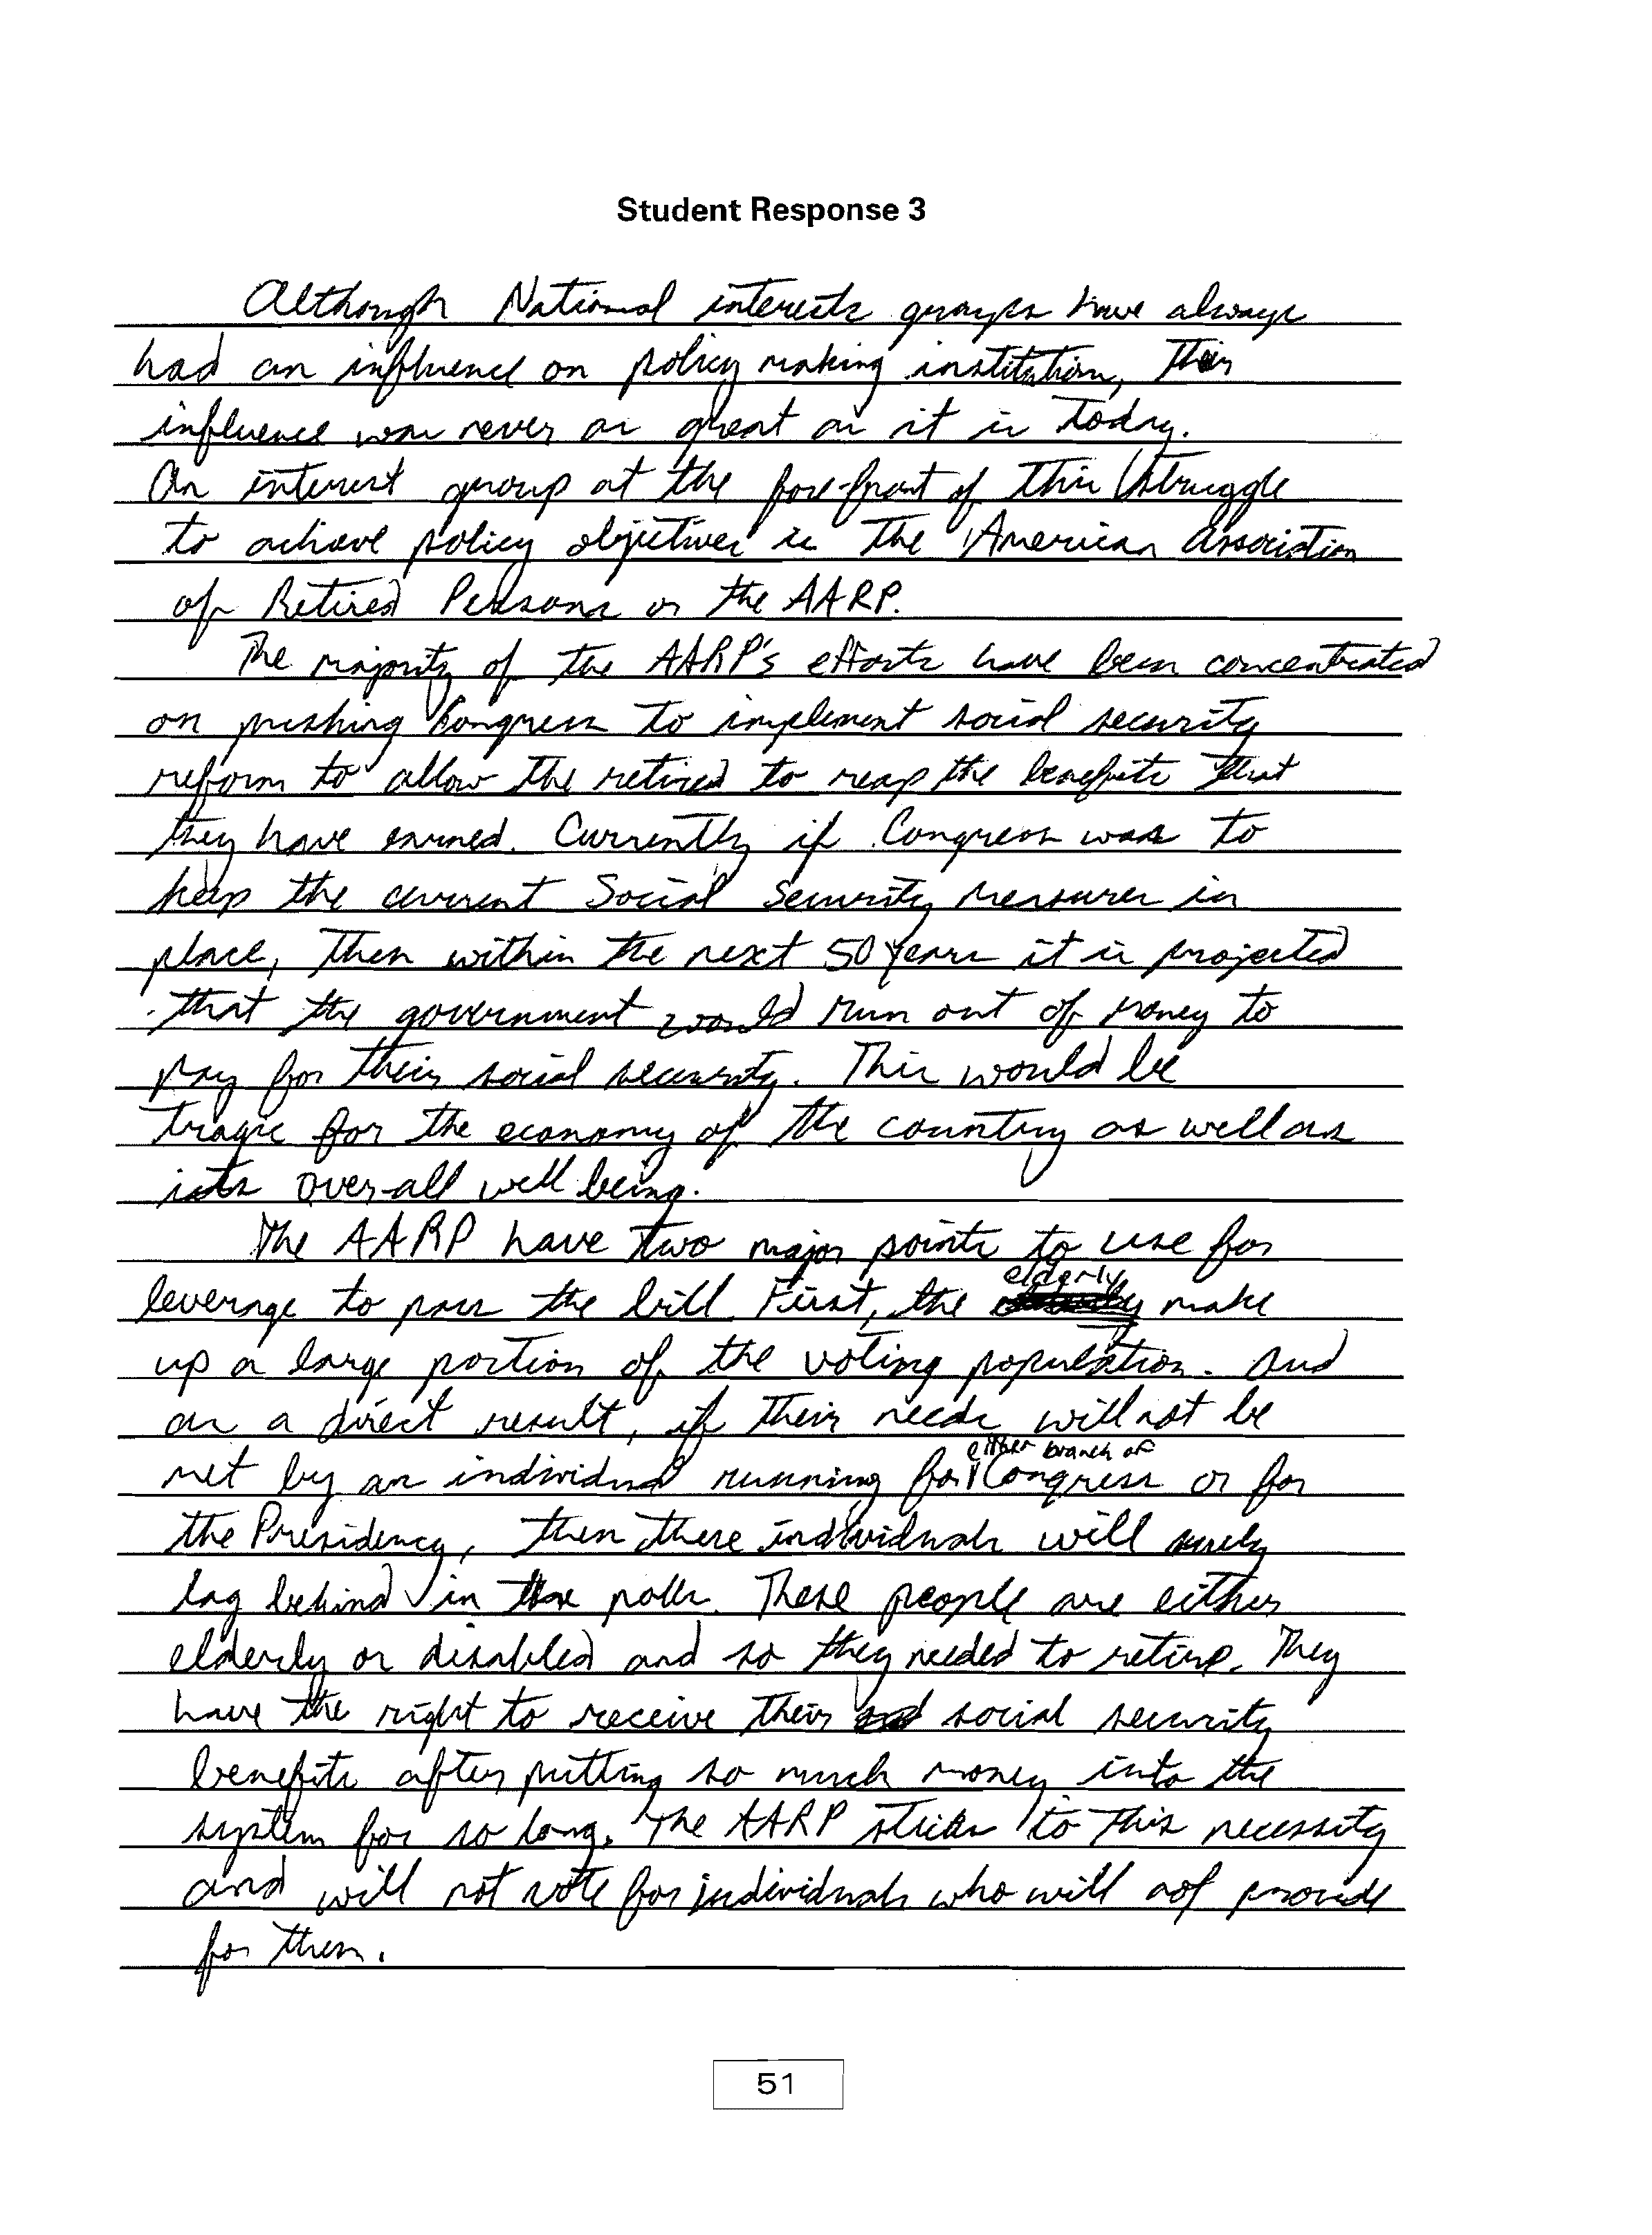 Student Response 3
Although National interests groups have always
had an influence on policy making institution, their
influence was never as great as it is today.
An interest group at the fore-front of this struggle
to achieve policy objectives is the American Association
of Retired Persons or the AARP.
The majority of the AARP's efforts have been concentrated
on pushing Congress to implement social security
reform to allow the retired to reap the benefits that
they have earned. Currently if Congress was to
keep the current Social Security measures in
place, then within the next 50 years it is projected
that the government would run out of money to
pay for their social security. This would be
tragic for the economy of the country as well as
its over-all well being.
The AARP have two major points to use for
leverage to pass the bill. First, the elderly make
up a large portion of the voting population. And
as a direct result, if their needs will not be
met by an individual running for either branch of Congress or for
the Presidency, then these individuals will surely
lag behind in the polls. These people are either
elderly or disabled and so they needed to retire. They
have the right to receive their social security
benefits after putting so much money into the
system for so long. The AARP sticks to this necessity
and will not vote for individuals who will not provide
for them.
51